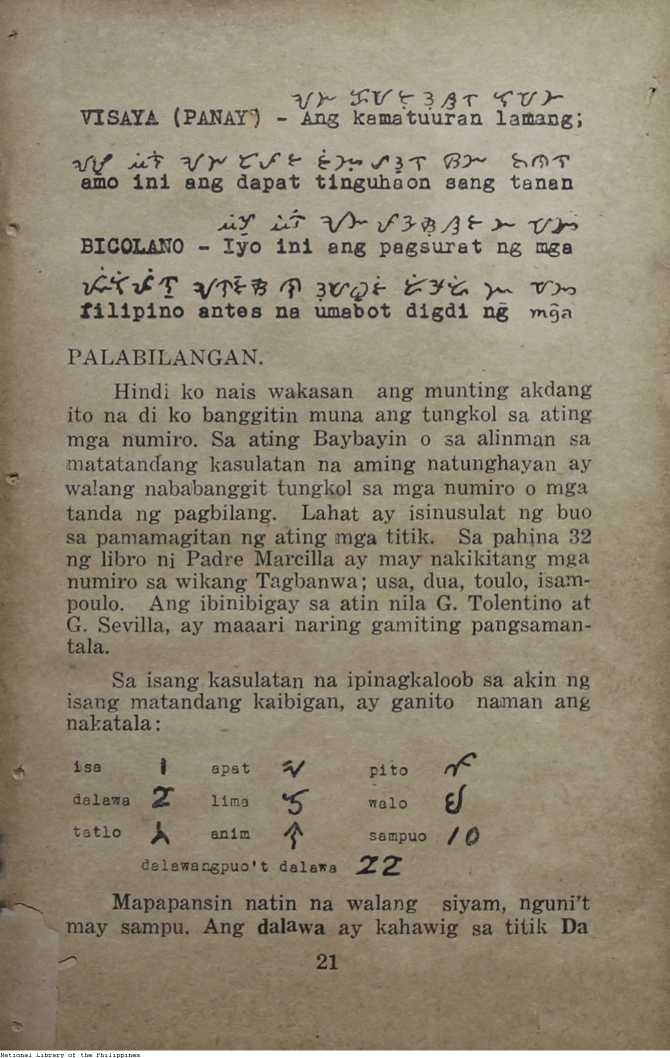 VISAYA (PANAY) - Ang kamatuuran lamang;
amo ini ang dapat tinguhaon sang tanan
BICOLANO - Iyo ini ang pagsurat ng mga
filipino antes na umabot digdi ng̃ mg̃a
PALABILANGAN.
Hindi ko nais wakasan ang munting akdang
ito na di ko banggitin muna ang tungkol sa ating
mga numiro. Sa ating Baybayin o sa alinman sa
matatandang kasulatan na aming natunghayan ay
walang nababanggit tungkol sa mga numiro o mga
tanda ng pagbilang. Lahat ay isinusulat ng buo
sa pamamagitan ng ating mga titik. Sa pahina 32
ng libro ni Padre Marcilla ay may nakikitang mga
numiro sa wikang Tagbanwa; usa, dua, toulo, isam-
poulo. Ang ibinibigay sa atin nila G. Tolentino at
G. Sevilla, ay maaari naring gamiting pangsaman-
tala.
Sa isang kasulatan na ipinagkaloob sa akin ng
isang matandang kaibigan, ay ganito naman ang
nakatala:
isa apat pito
dalawa lima walo
tatlo anim sampuo 10
dalawangpuo't dalawa 22
Mapapansin natin na walang siyam, nguni't
may sampu. Ang dalawa ay kahawig sa titik Da
21
National Library of the Philippines